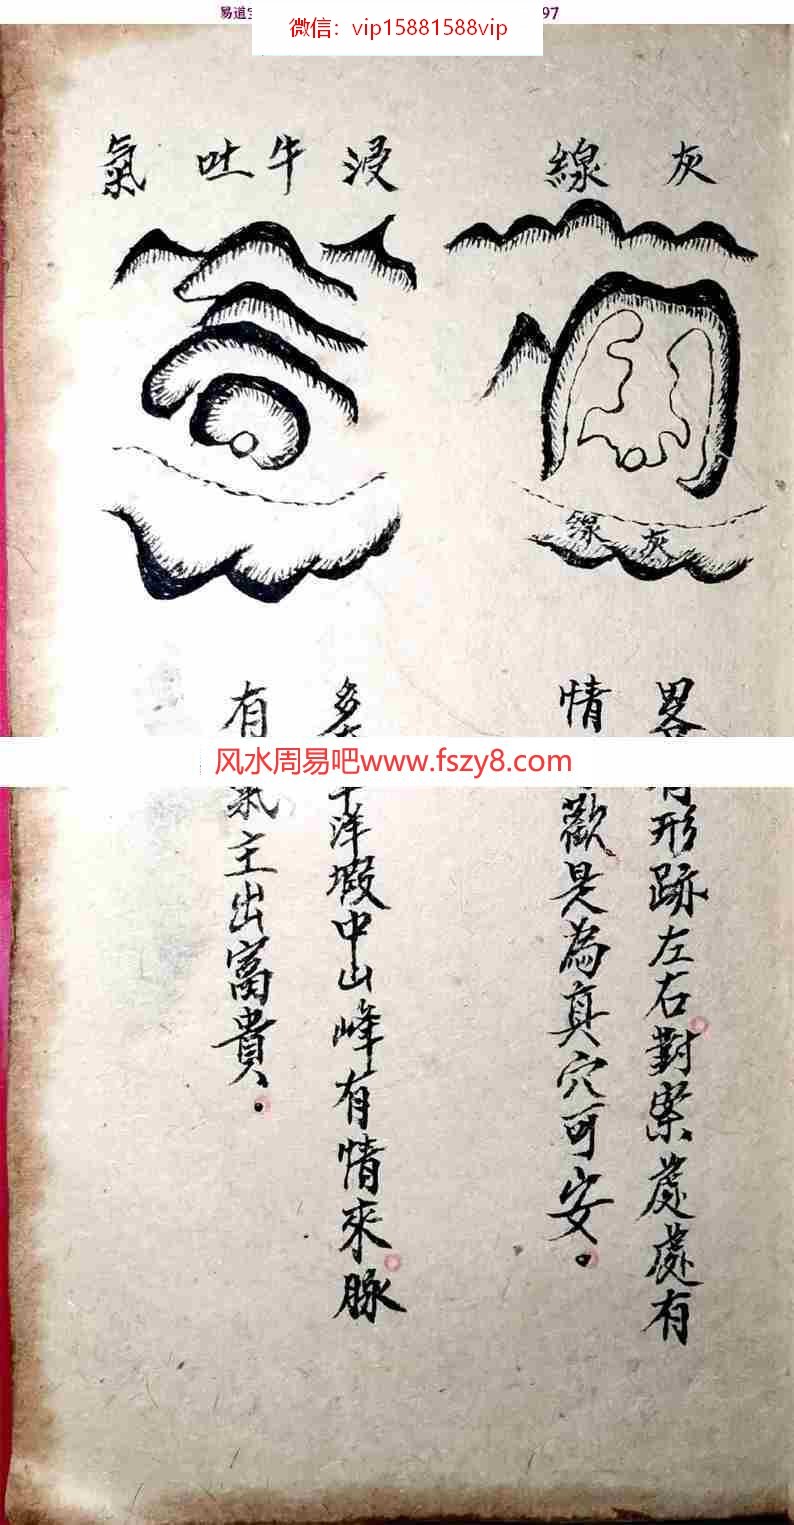 易道
97
微信：vip15881588vip
灰線
浸牛吐氣
灰線
形跡左右對案處處有
情
歡是為真穴可安。
洋塅中山峰有情來脉
有
氣主出富貴。
风水周易吧www.fszy8.com